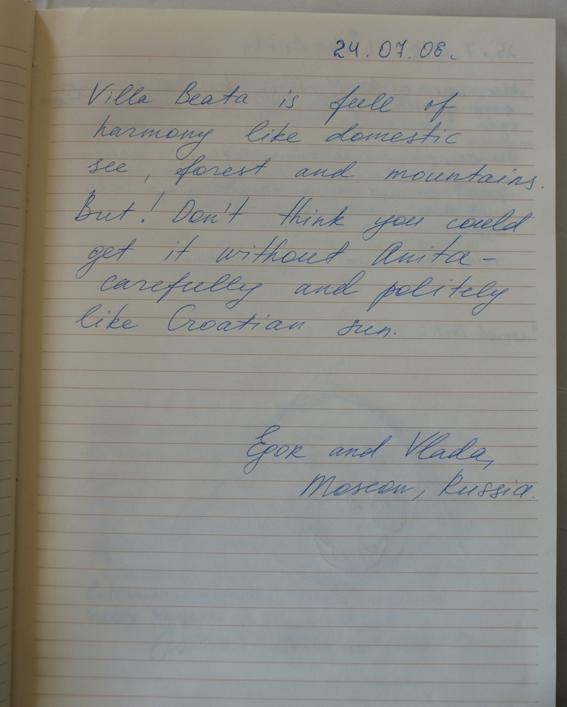 24.07.08.
Villa Beata is full of
harmony like domestic
see, forest and mountains.
But! Don't think you could
get it without Anita -
carefully and politely
like Croatian sun.
Egor and Vlada,
Moscow, Russia.